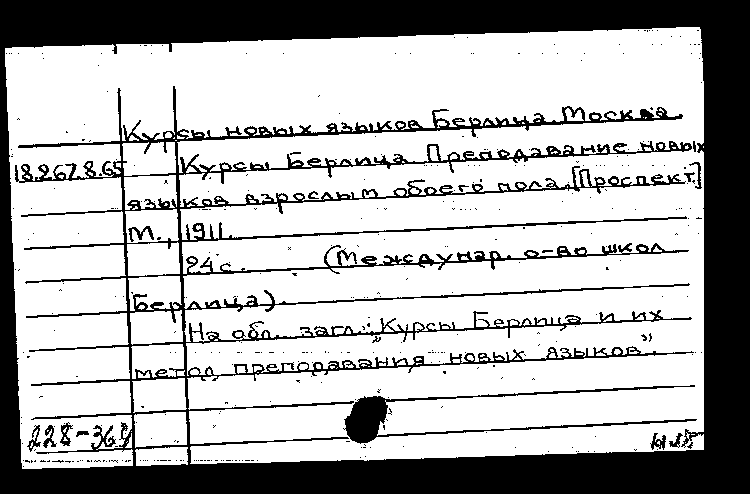 Курсы новых языков Берлица. Москва.
18.267.8.65 Курсы Берлица Преподавание новых
языков взрослым обоего пола. [Проспект.]
М., 1911.
24 с. (Междунар. о-во школ
Берлица).
На обл. загл.: „Курсы Берлица и их
метод преподавания новых языков".
228-369